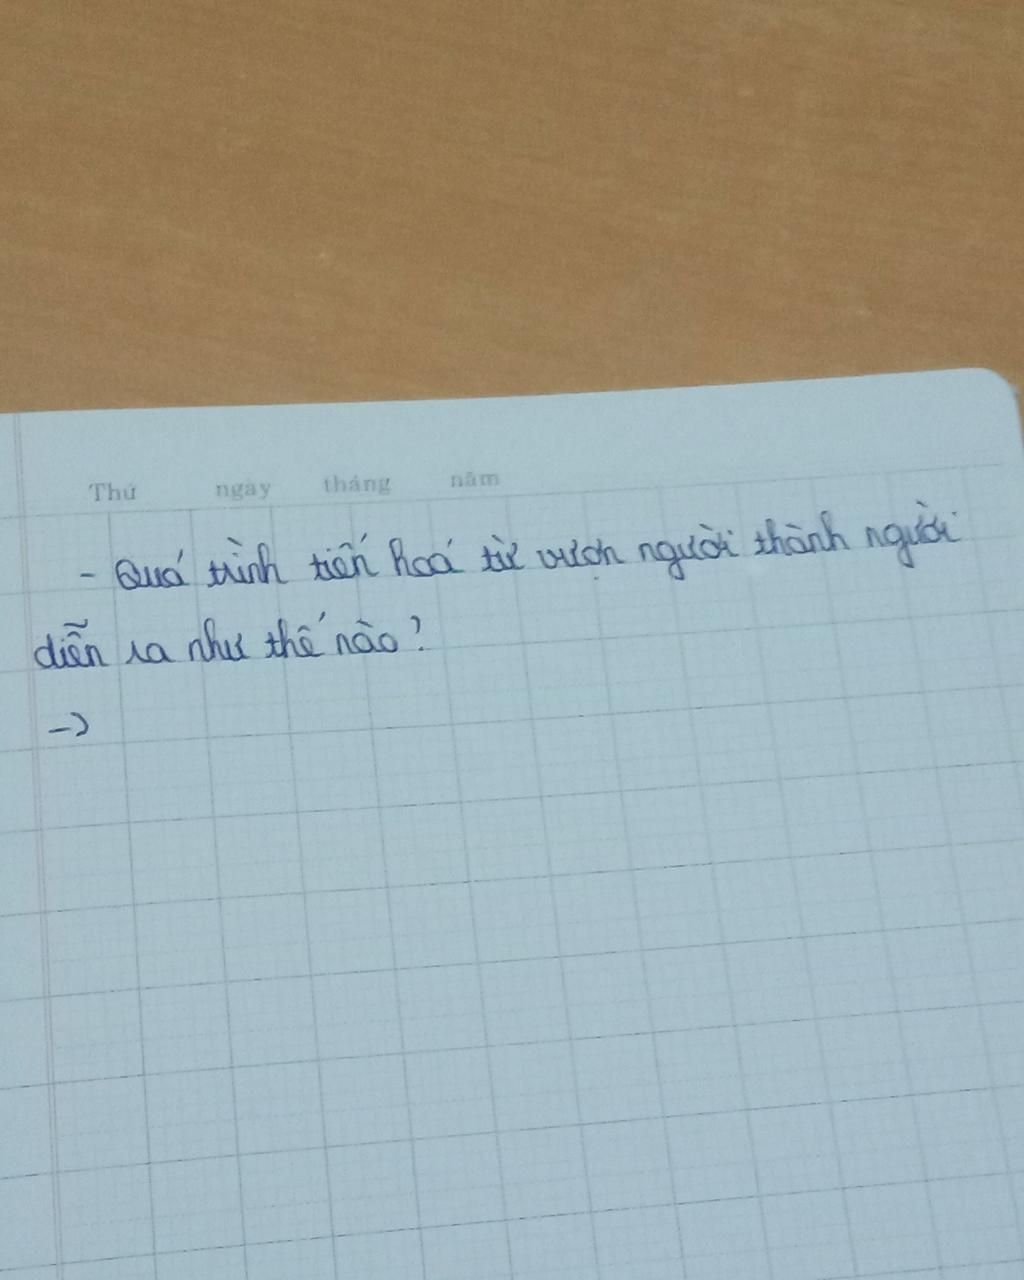 Thứ ngày tháng năm
- Quá trình tiến hoá từ vượn người thành người
diễn ra như thế nào?
->